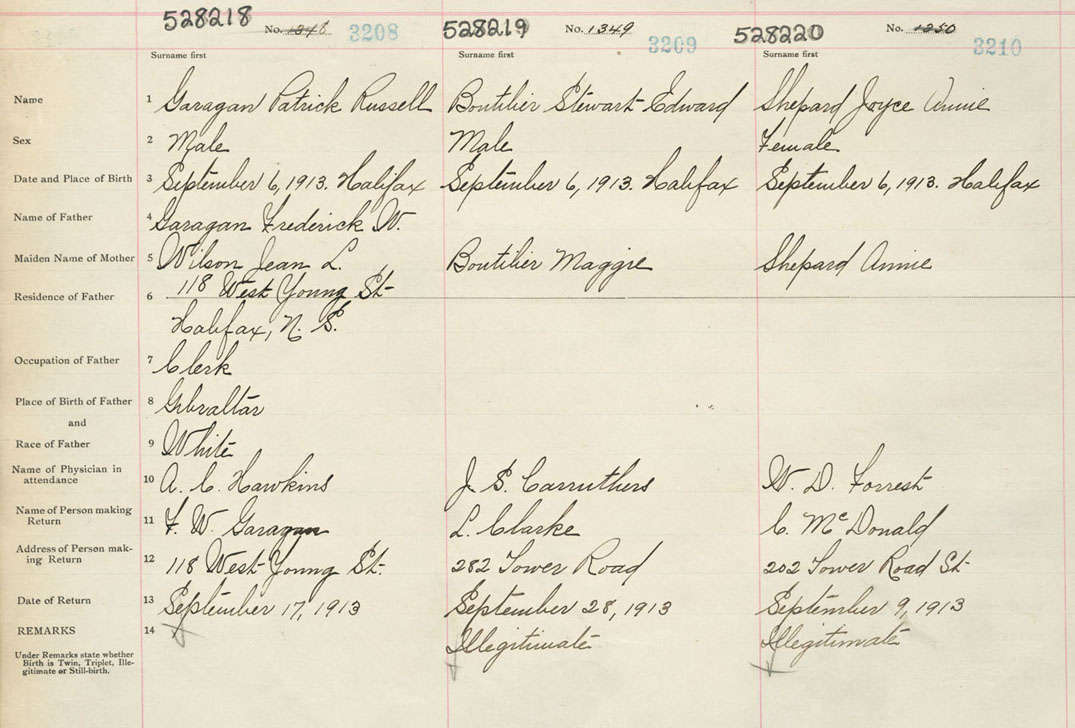 528218 No. 1348 3208 528219 No. 1349 3209 528220 No. 1350 3210
Surname first Surname first Surname first
Name 1 Garagan Patrick Russell Boutilier Stewart Edward Shepard Joyce Annie
Sex 2 Male Male Female
Date and Place of Birth 3 September 6, 1913. Halifax September 6, 1913. Halifax September 6, 1913. Halifax
Name of Father 4 Garagan Frederick W.
Maiden Name of Mother 5 Wilson Jean L. Boutilier Maggie Shepard Annie
Residence of Father 6 118 West Young St
Halifax, N. S.
Occupation of Father 7 Clerk
Place of Birth of Father 8 Gibraltar
and
Race of Father 9 White
Name of Physician in
attendance 10 A. C. Hawkins J. S. Carruthers W. D. Forrest
Name of Person making
Return 11 F. W. Garagan L. Clarke C. McDonald
Address of Person mak-
ing Return 12 118 West Young St. 282 Tower Road 202 Tower Road St
Date of Return 13 September 17, 1913 September 28, 1913 September 9, 1913
REMARKS 14 Illegitimate Illegitimate
Under Remarks state whether
Birth is Twin, Triplet, Ille-
gitimate or Still-birth.